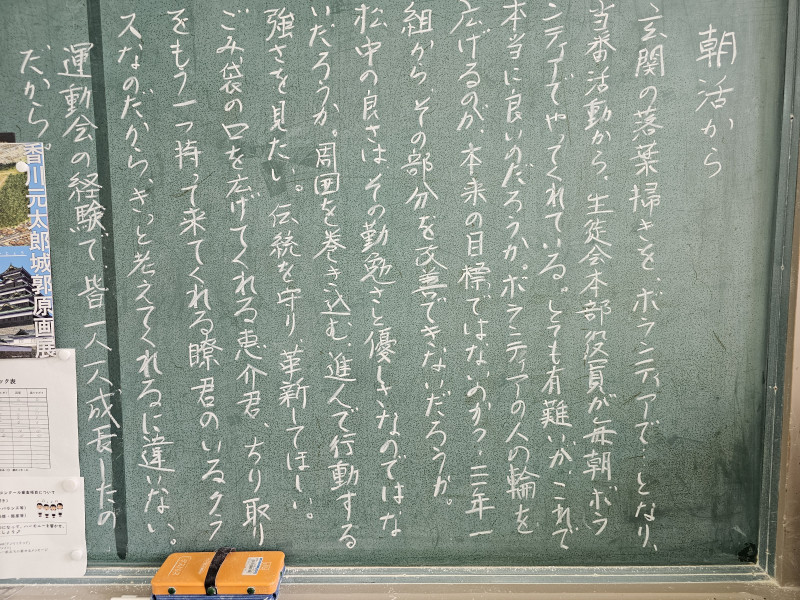 朝活から
玄関の落葉掃きを、ボランティアで…となり、
当番活動から、生徒会本部役員が毎朝、ボラ
ンティアでやってくれている。とても有難いが、これで
本当に良いのだろうか。ボランティアの人の輪を
広げるのが、本来の目標ではないのかっ、二年一
組から、その部分を改善できないだろうか。
松中の良さはその勤勉さと優しさなのではな
いだろうか。周囲を巻き込む、進んで行動する
強さを見たい。伝統を守り、革新してほしい。
ごみ袋の口を広げてくれる恵介君、ちり取り
をもう一つ持って来てくれる瞭君のいるクラ
スなのだから、きっと考えてくれるに違いない。
運動会の経験で、皆一人一人成長したの
だから。
香川元太郎城郭原画展
ック表